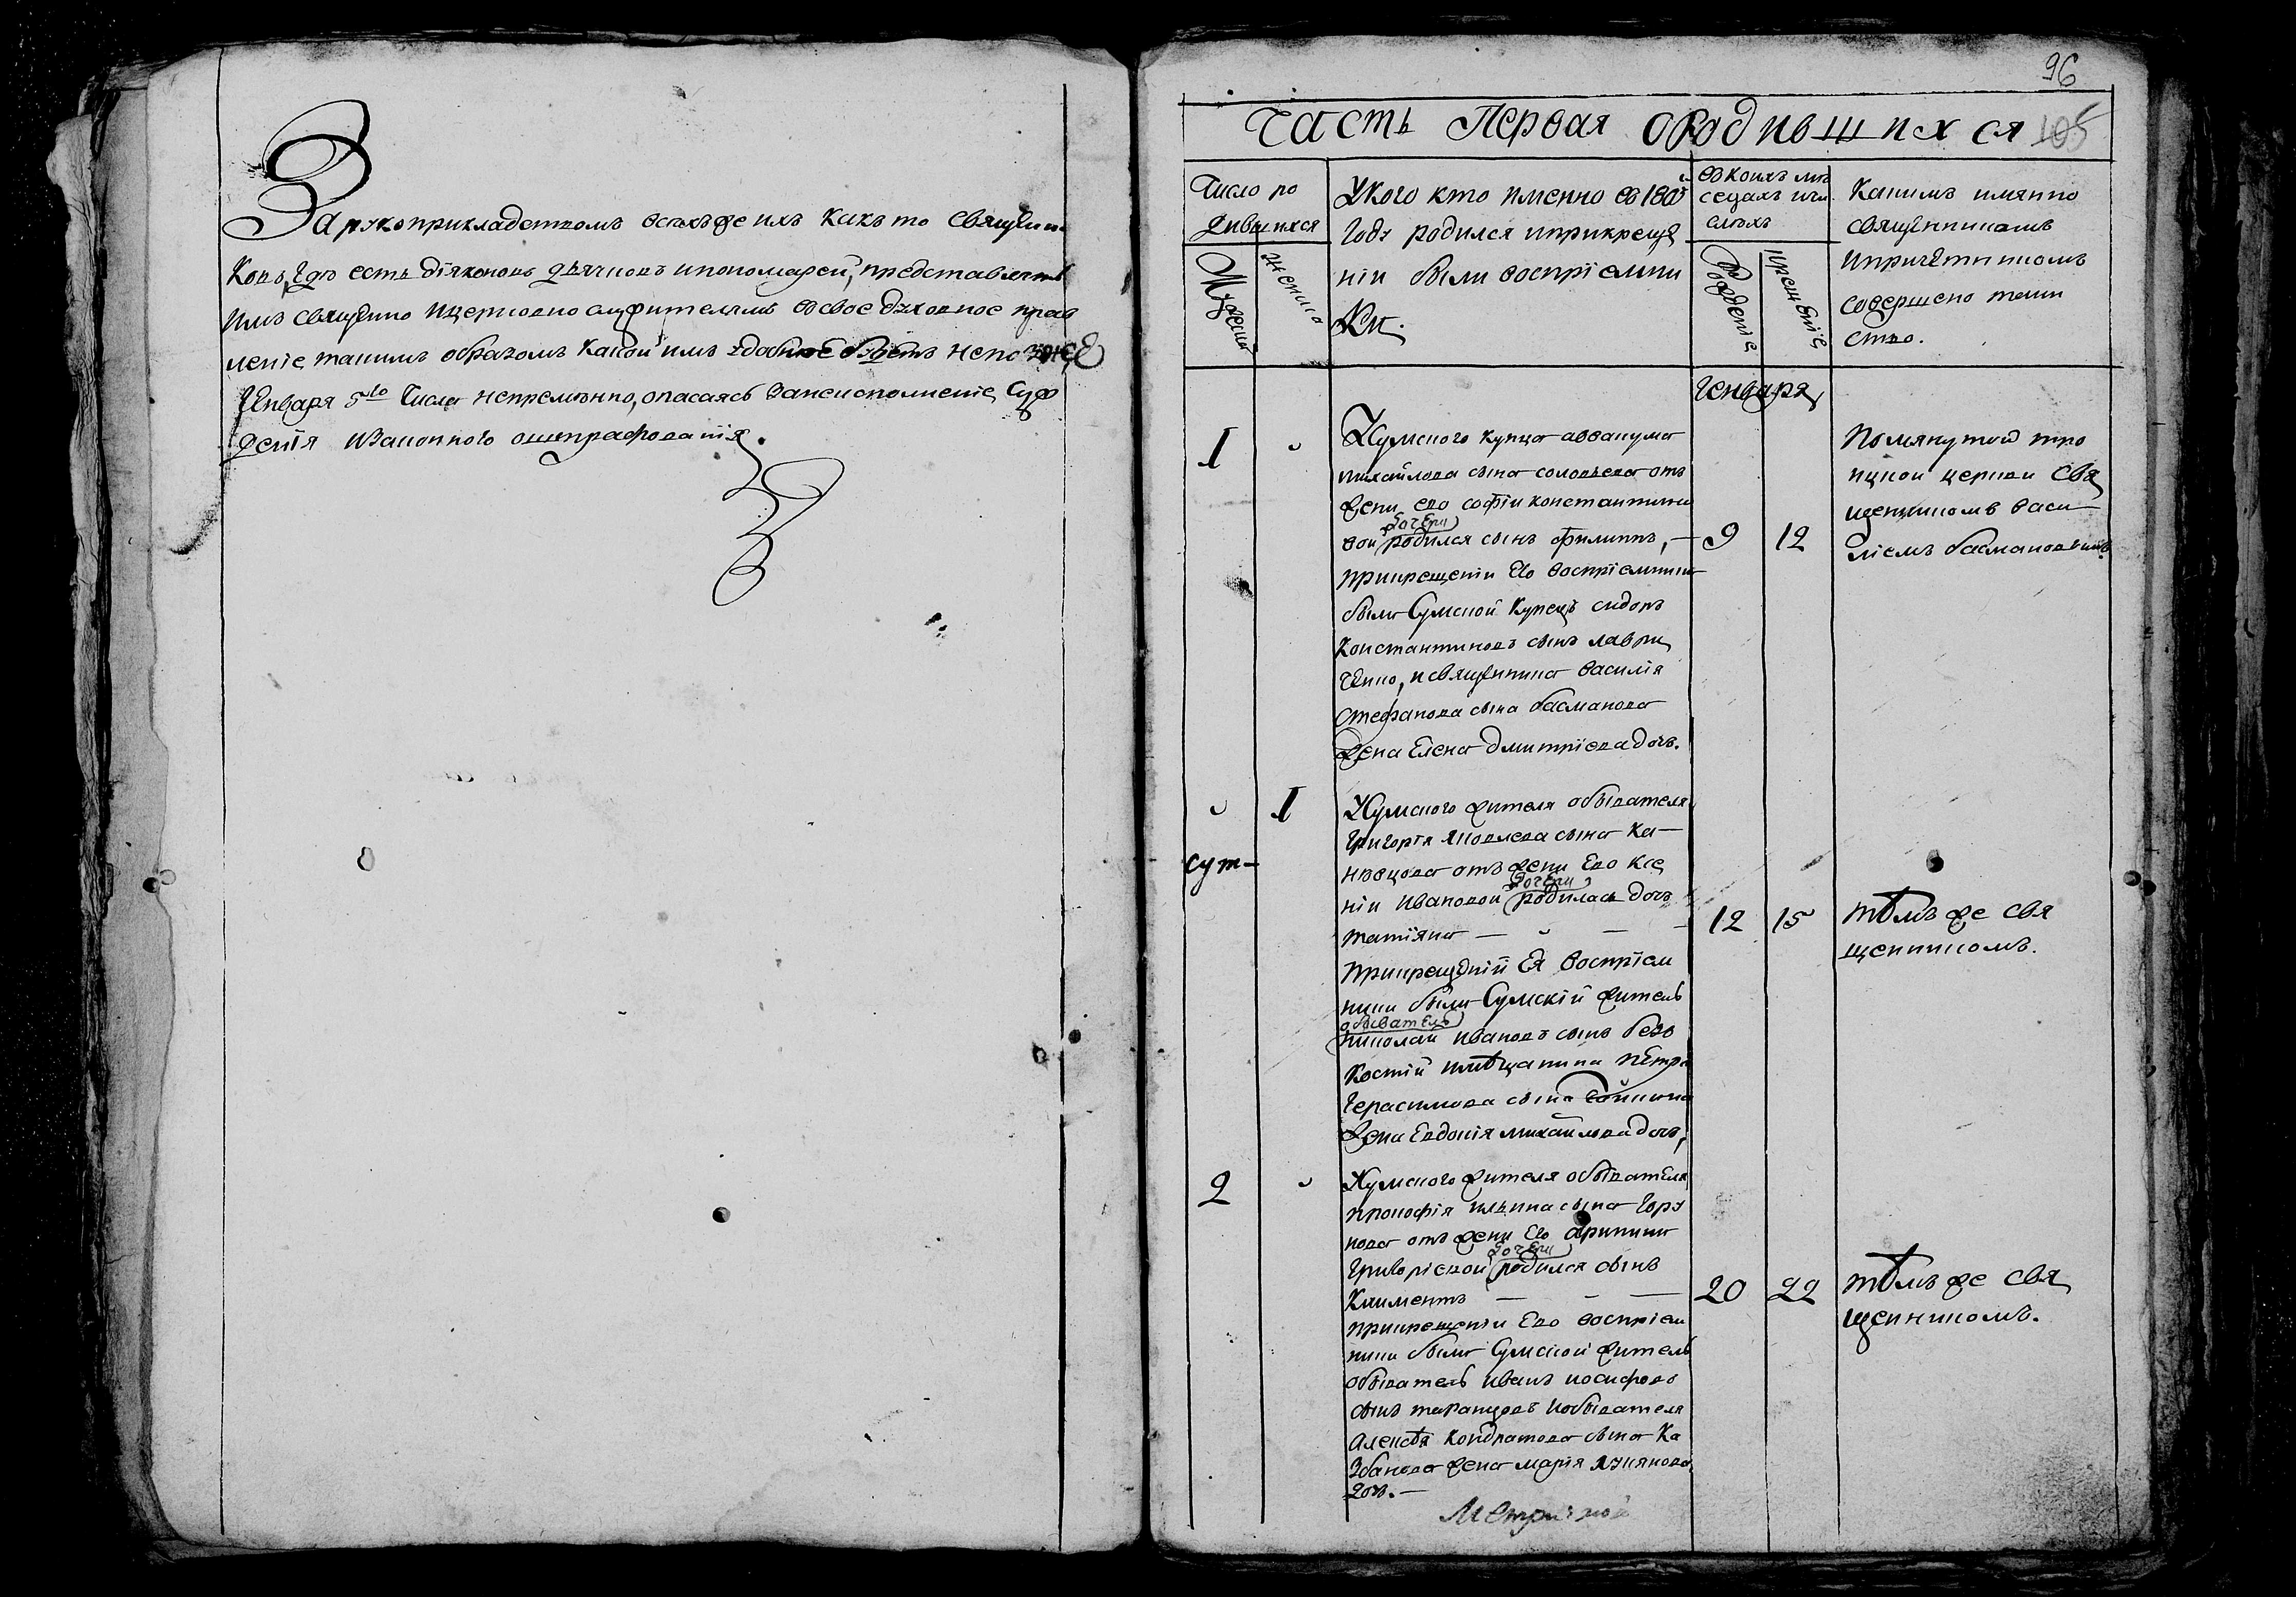 За рукоприкладством всехъже ихъ какъ то священи
ковъ, где есть дїяконовъ дьячковъ ипономарей, представлять
имъ священо ицерковно служителямъ восвое духовное прав
ленїе такимъ образомъ какой имъ здѣ будетъ непозже
Генваря 5го числа непремѣнно, опасаясь занеисполненїе суж
денїя изаконного оштрафованїя.
96
Часть Первая ородившихся 105
Число ро
дившихся
Мужеска
женска
Укого кто именно въ180
году родился иприкреще
нїи были воспрїемни
ки.
вокоихъ мѣ
сецахъ ичи
слѣхъ
рожденїе
крещенїе
Какимъ имянно
священникомъ
ипричетникомъ
совершено таин
ство.
Генваря
1
Усумского купца аввакума
михайлова сына соловьева отъ
жены его софїи константино
вой дочери родился сынъ филиппъ, —
прикрещенїи Его воспрїемники
были Сумской купецъ сидоръ
Константиновъ сынъ лаври
ченко, исвященника василїя
стефанова сына басманова
жена Елена дмитрїева дочь.
9 12
Помянутой тро
ицкой церкви свя
щенникомъ васи
лїемъ басмановымъ
1
сум—
Усумского жителя обывателя
григорїя яковлева сына ка—
нѣвцова отъ жены Его ксе
нїи ивановой дочери родилась дочь
татїяна — — —
прикрещенїи Ея воспрїем
ники были Сумскїй житель
обыватель
николай ивановъ сынъ безъ
костїй имѣщанина петра
Герасимова сына
жена Евдокїя михайлова дочь,
12 15
тѣмъ же свя
щенникомъ.
2
Усумского жителя обывателя
прокофїя ильина сына гору
нова отъ жены Его ирины
григорїевой дочери родился сынъ
Климентъ — — —
прикрещенїи Его воспрїем
ники были Сумской житель
обыватель иванъ иосифовъ
сынъ таранцовъ иобывателя
алексѣя кондратова сына ка
збанова жена марїя лукянова
дочь. —
20 22
тѣмъ же свя
щенникомъ.